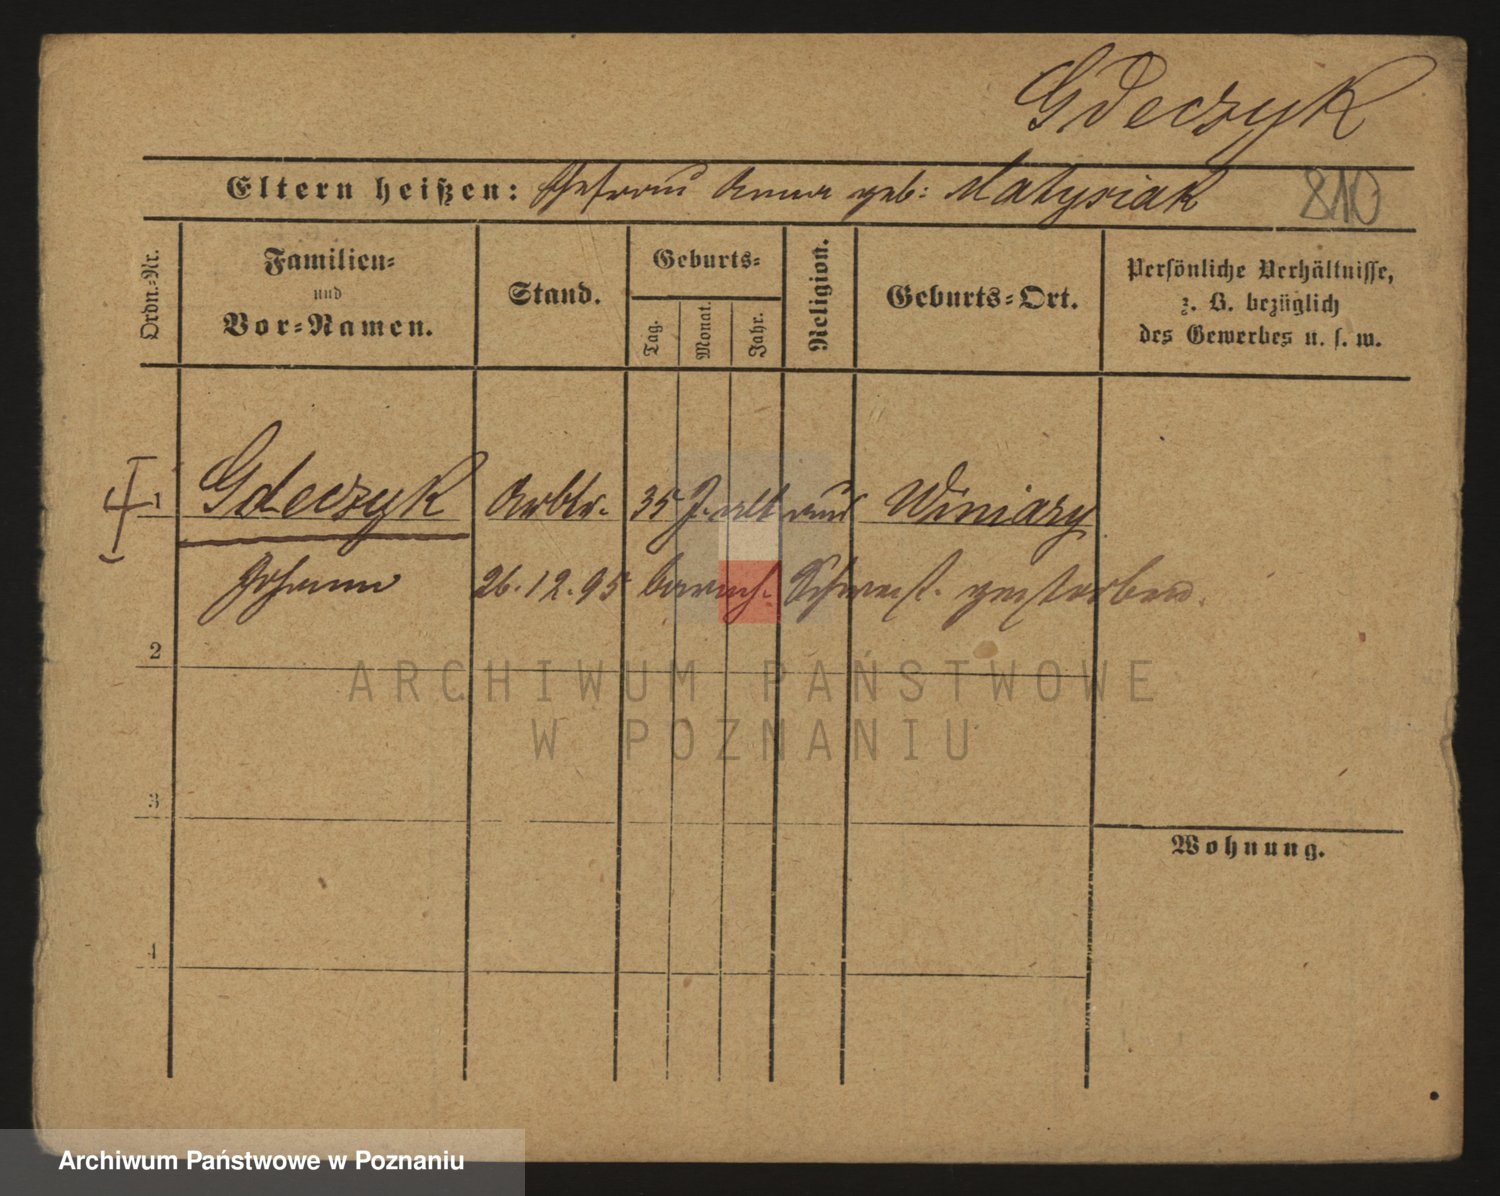 Gdeczyk
Eltern heißen: Ehefrau Anna geb: Matysiak 810
Ordn.-Nr.
Familien-
und
Vor-Namen.
Stand.
Geburts-
Tag.
Monat.
Jahr.
Religion.
Geburts-Ort.
Persönliche Verhältnisse,
z. B. bezüglich
des Gewerbes u. s. w.
1 Gdeczyk Arbtr. 35 J. alt aus Winiary
Johann 26.12.95 barmh. Schwest. gestorben.
2
ARCHIWUM PAŃSTWOWE
W POZNANIU
3
Wohnung.
4
Archiwum Państwowe w Poznaniu